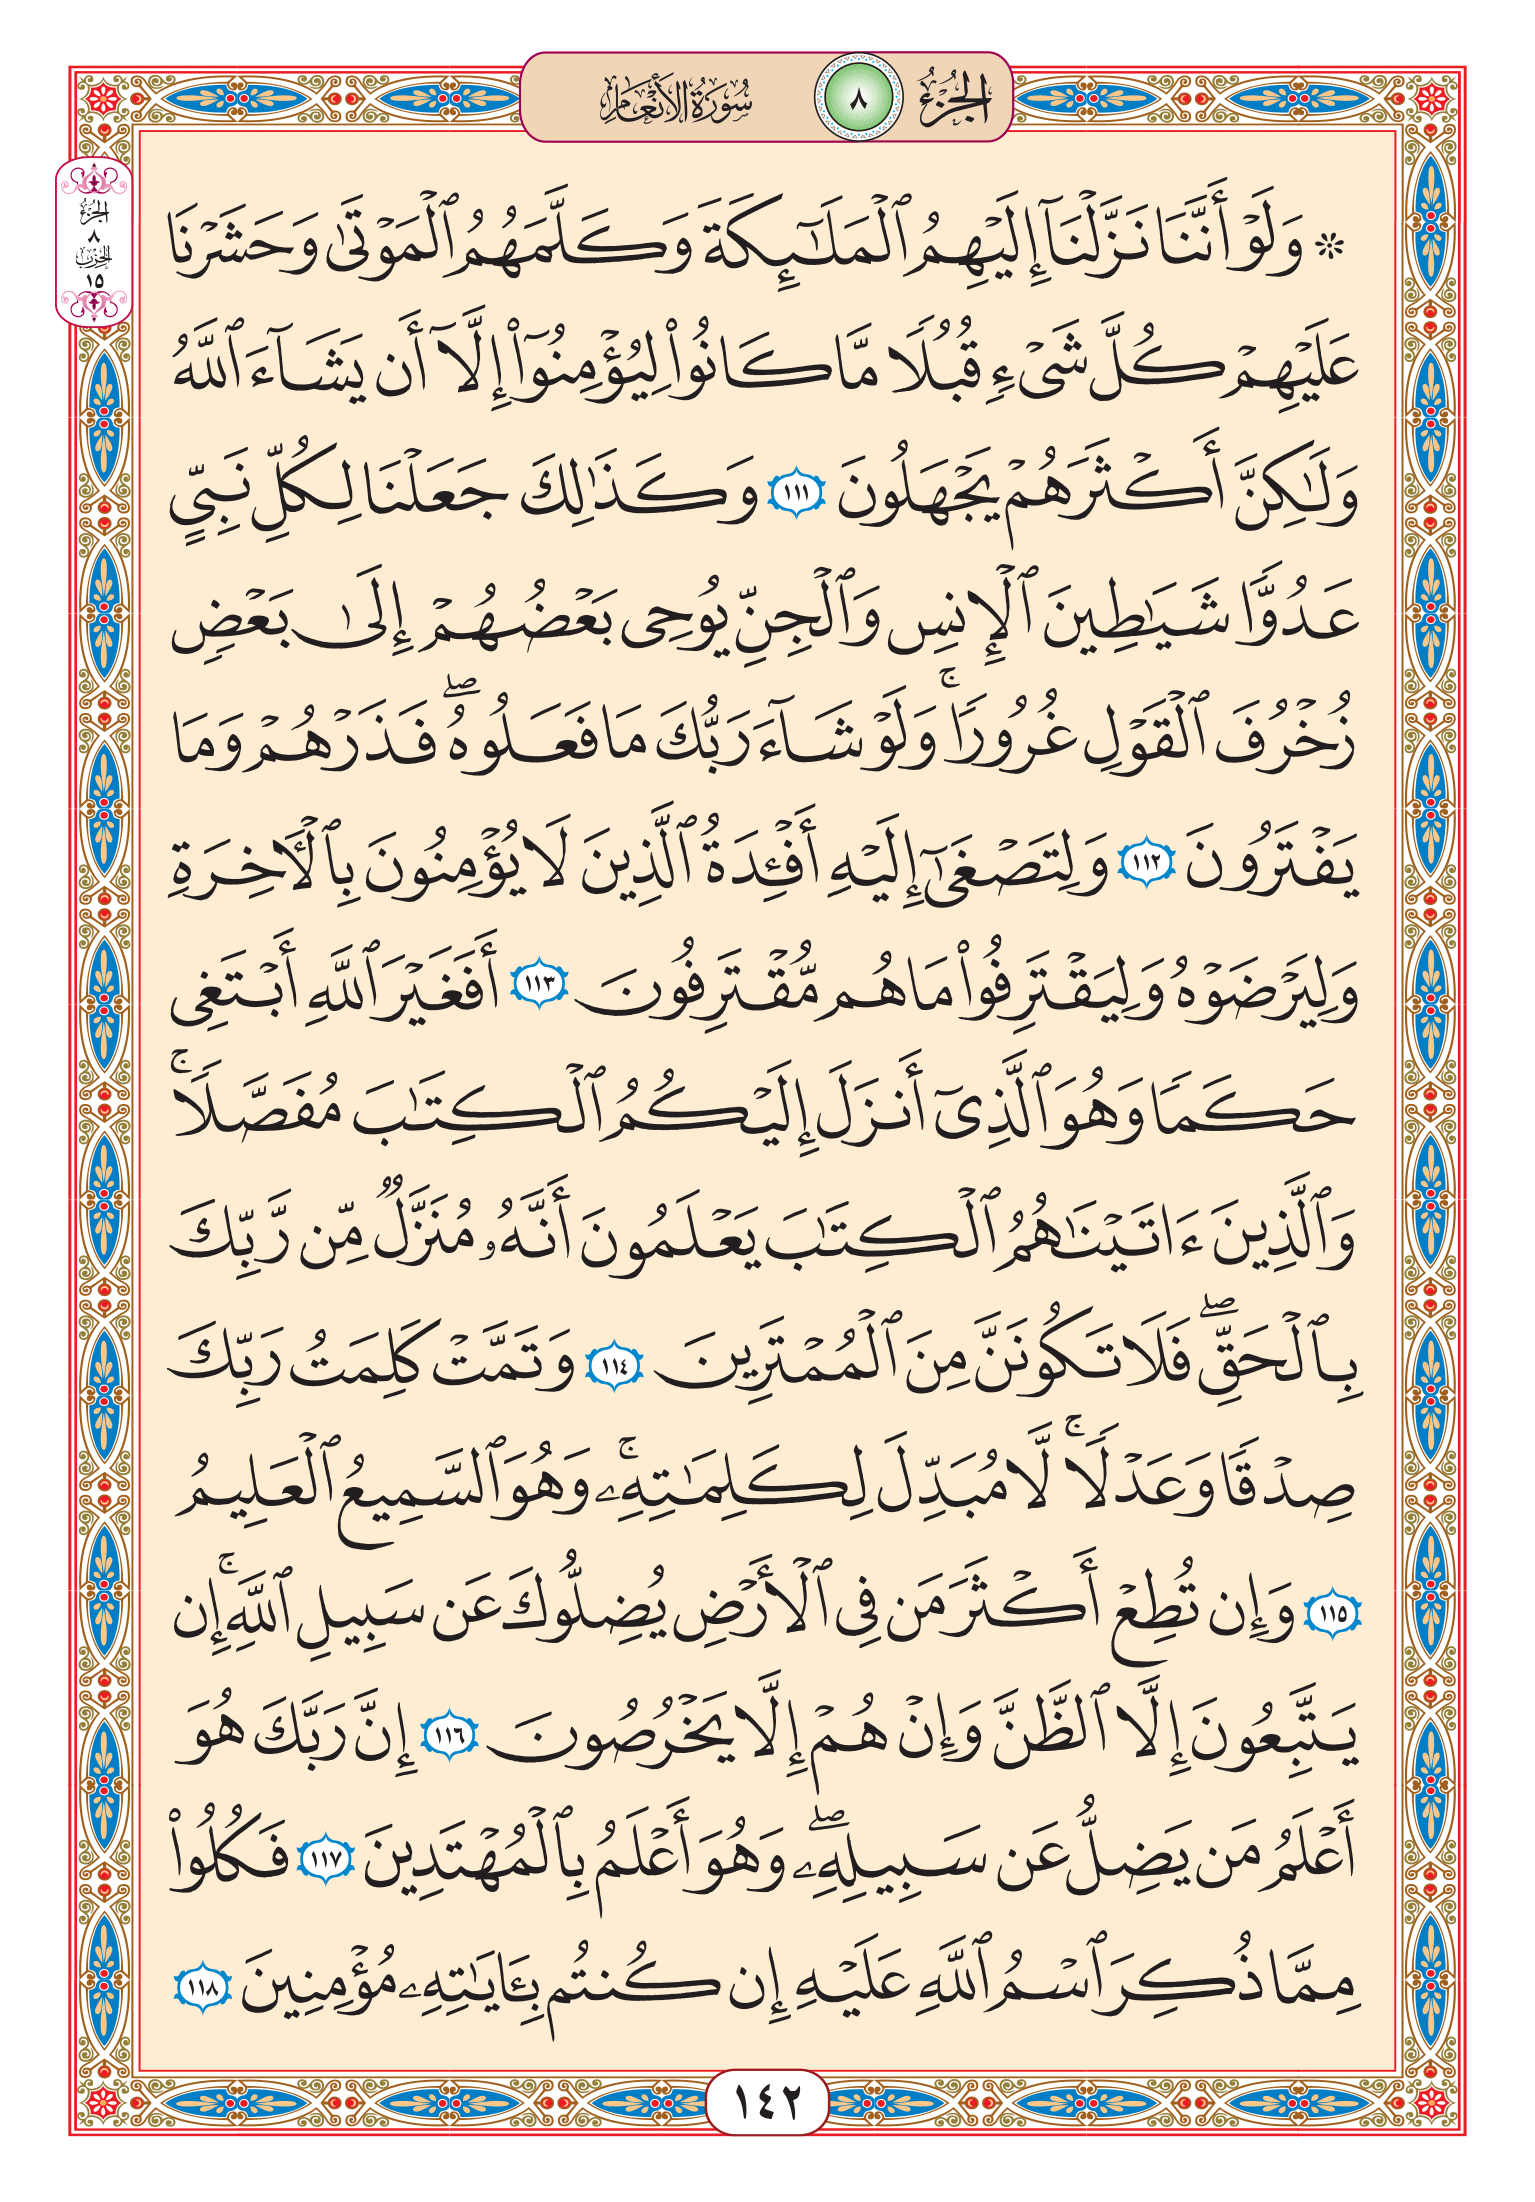 الجزء ٨ سورة الأنعام
الجزء
٨
الحزب
١٥
۞ وَلَوْ أَنَّنَا نَزَّلْنَآ إِلَيْهِمُ ٱلْمَلَٰٓئِكَةَ وَكَلَّمَهُمُ ٱلْمَوْتَىٰ وَحَشَرْنَا
عَلَيْهِمْ كُلَّ شَىْءٍ قُبُلًا مَّا كَانُوا۟ لِيُؤْمِنُوٓا۟ إِلَّآ أَن يَشَآءَ ٱللَّهُ
وَلَٰكِنَّ أَكْثَرَهُمْ يَجْهَلُونَ ١١١ وَكَذَٰلِكَ جَعَلْنَا لِكُلِّ نَبِىٍّ
عَدُوًّا شَيَٰطِينَ ٱلْإِنسِ وَٱلْجِنِّ يُوحِى بَعْضُهُمْ إِلَىٰ بَعْضٍ
زُخْرُفَ ٱلْقَوْلِ غُرُورًا ۚ وَلَوْ شَآءَ رَبُّكَ مَا فَعَلُوهُ ۖ فَذَرْهُمْ وَمَا
يَفْتَرُونَ ١١٢ وَلِتَصْغَىٰٓ إِلَيْهِ أَفْـِٔدَةُ ٱلَّذِينَ لَا يُؤْمِنُونَ بِٱلْـَٔاخِرَةِ
وَلِيَرْضَوْهُ وَلِيَقْتَرِفُوا۟ مَا هُم مُّقْتَرِفُونَ ١١٣ أَفَغَيْرَ ٱللَّهِ أَبْتَغِى
حَكَمًا وَهُوَ ٱلَّذِىٓ أَنزَلَ إِلَيْكُمُ ٱلْكِتَٰبَ مُفَصَّلًا ۚ
وَٱلَّذِينَ ءَاتَيْنَٰهُمُ ٱلْكِتَٰبَ يَعْلَمُونَ أَنَّهُۥ مُنَزَّلٌ مِّن رَّبِّكَ
بِٱلْحَقِّ ۖ فَلَا تَكُونَنَّ مِنَ ٱلْمُمْتَرِينَ ١١٤ وَتَمَّتْ كَلِمَتُ رَبِّكَ
صِدْقًا وَعَدْلًا ۚ لَّا مُبَدِّلَ لِكَلِمَٰتِهِۦ ۚ وَهُوَ ٱلسَّمِيعُ ٱلْعَلِيمُ
١١٥ وَإِن تُطِعْ أَكْثَرَ مَن فِى ٱلْأَرْضِ يُضِلُّوكَ عَن سَبِيلِ ٱللَّهِ ۚ إِن
يَتَّبِعُونَ إِلَّا ٱلظَّنَّ وَإِنْ هُمْ إِلَّا يَخْرُصُونَ ١١٦ إِنَّ رَبَّكَ هُوَ
أَعْلَمُ مَن يَضِلُّ عَن سَبِيلِهِۦ ۖ وَهُوَ أَعْلَمُ بِٱلْمُهْتَدِينَ ١١٧ فَكُلُوا۟
مِمَّا ذُكِرَ ٱسْمُ ٱللَّهِ عَلَيْهِ إِن كُنتُم بِـَٔايَٰتِهِۦ مُؤْمِنِينَ ١١٨
١٤٢